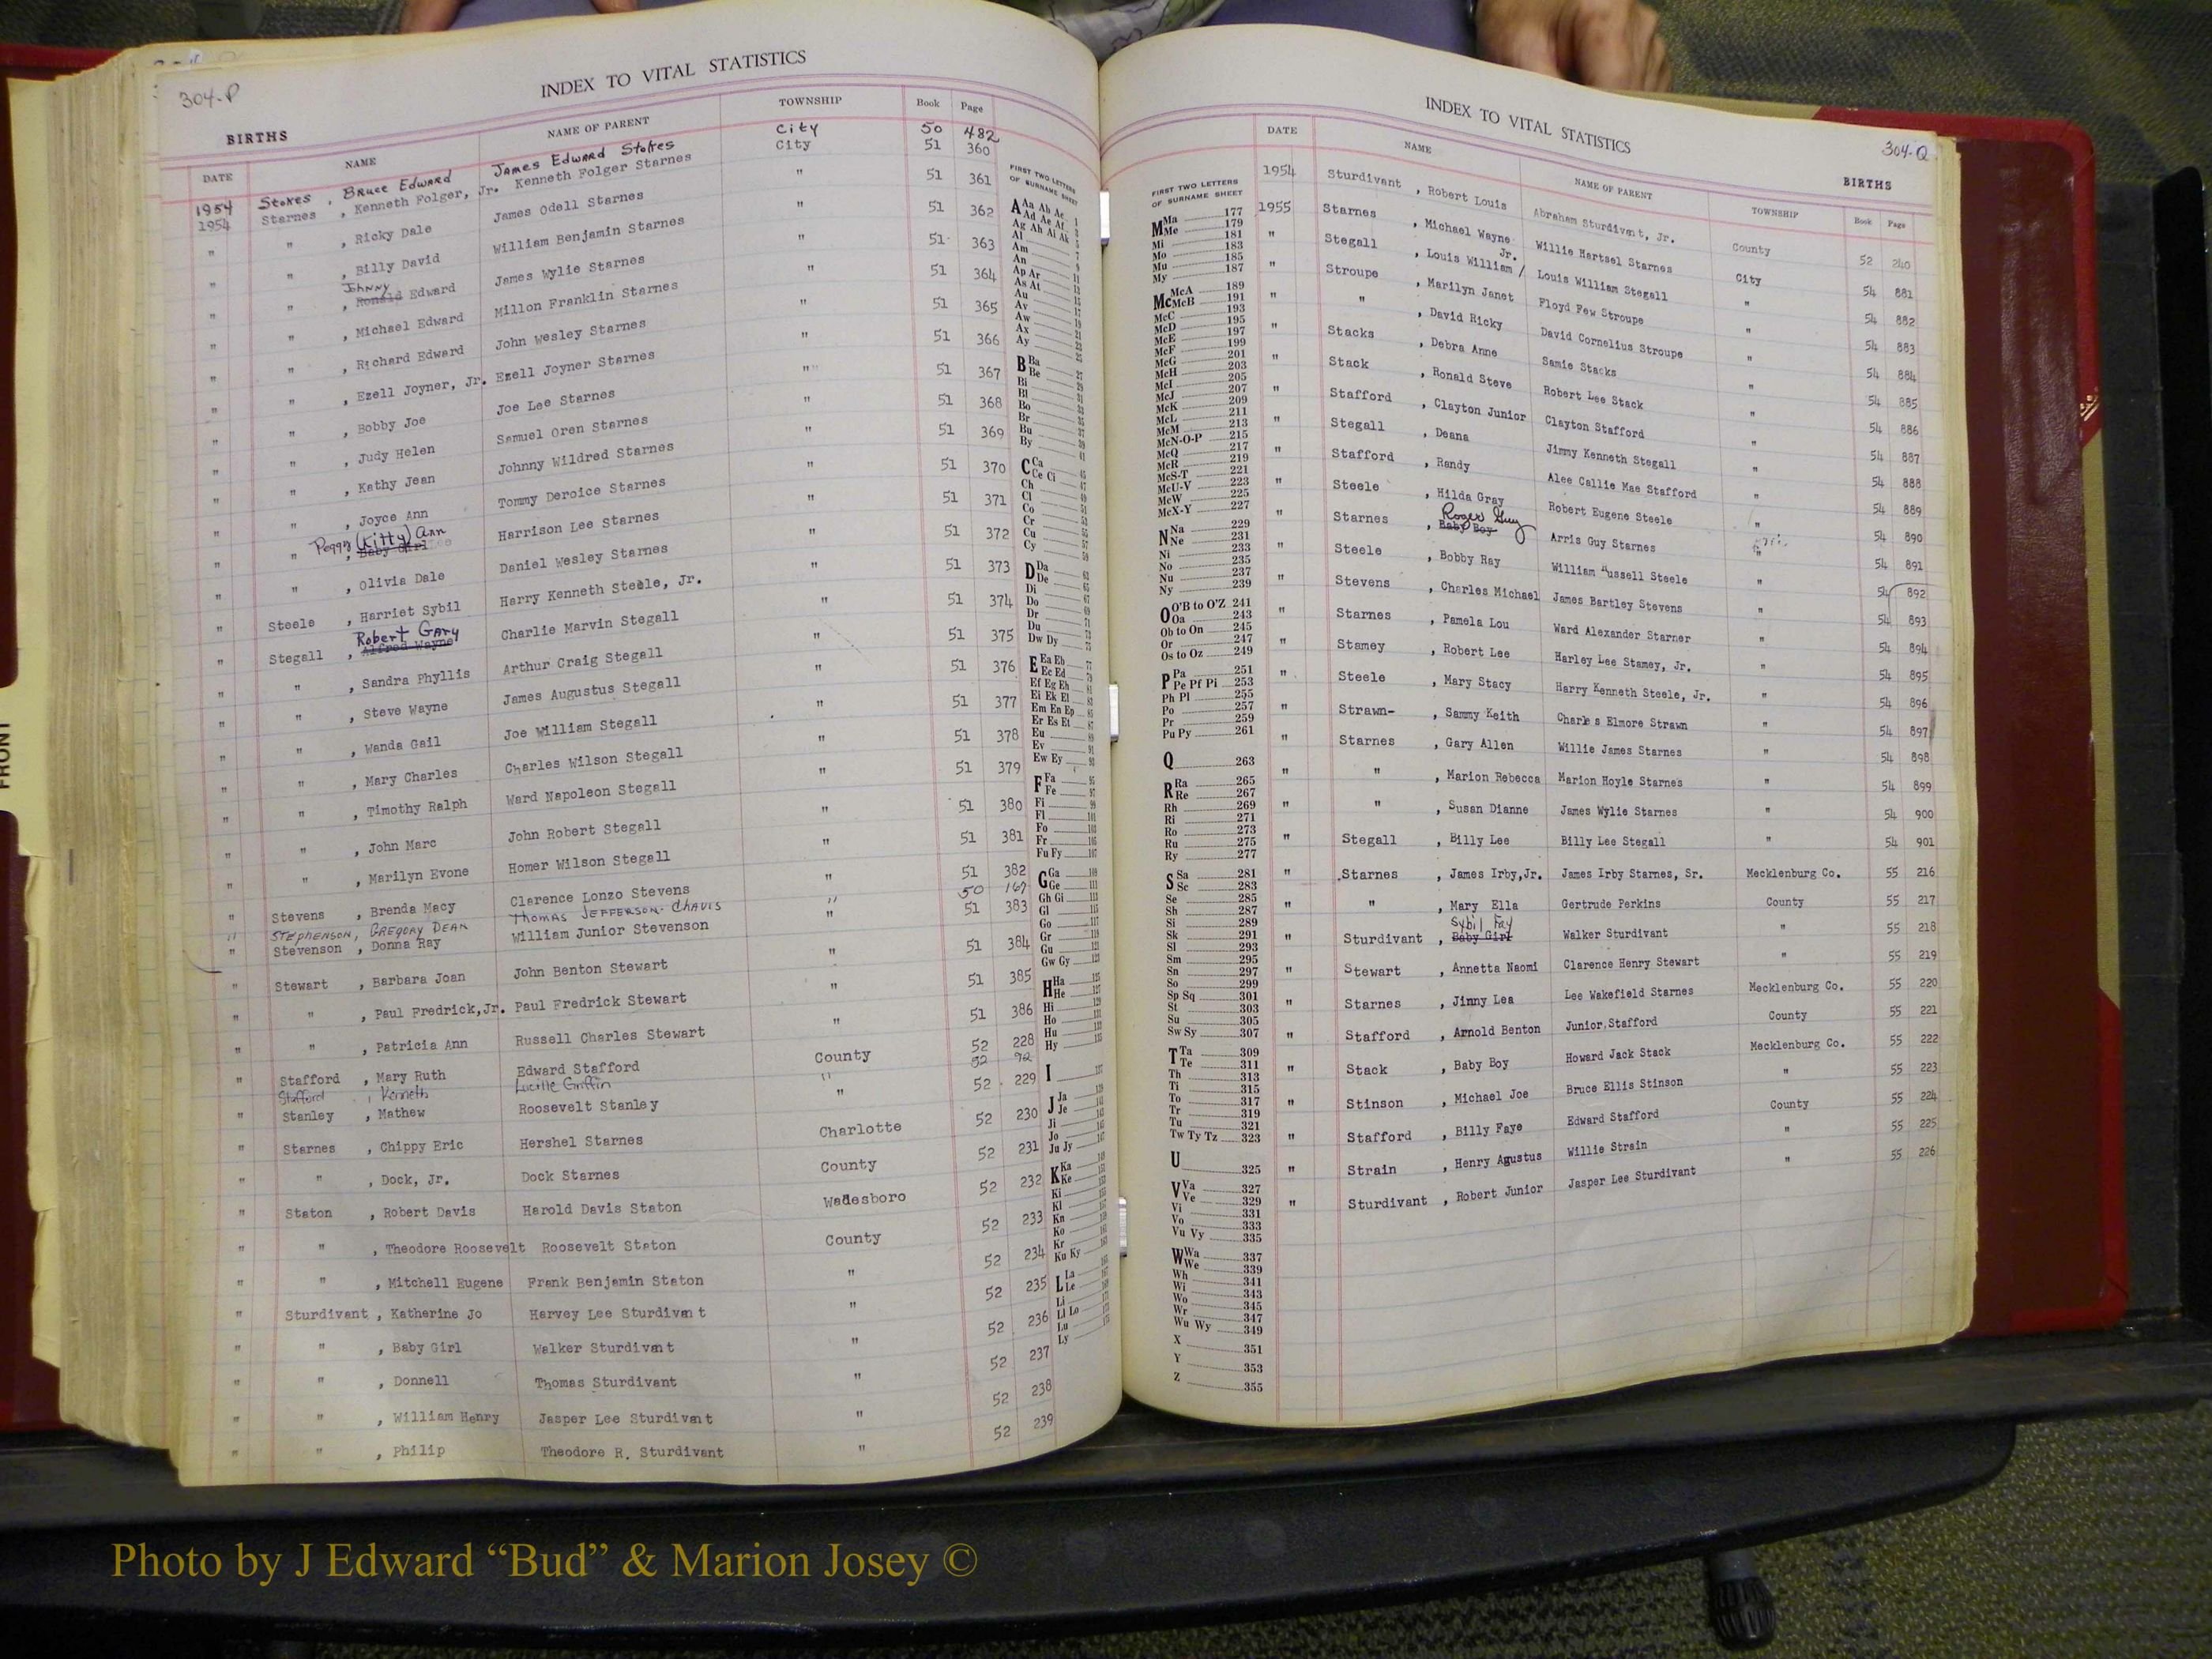 304-P
INDEX TO VITAL STATISTICS
BIRTHS
DATE NAME NAME OF PARENT TOWNSHIP Book Page
1954 Stokes , Bruce Edward James Edward Stokes City 50 482
1954 Starnes , Kenneth Folger, Jr. Kenneth Folger Starnes City 51 360
" " , Ricky Dale James Odell Starnes " 51 361
" " , Billy David William Benjamin Starnes " 51 362
Johnny
" " , Ronald Edward James Wylie Starnes " 51 363
" " , Michael Edward Millon Franklin Starnes " 51 364
" " , Richard Edward John Wesley Starnes " 51 365
" " , Ezell Joyner, Jr. Ezell Joyner Starnes " 51 366
" " , Bobby Joe Joe Lee Starnes " 51 367
" " , Judy Helen Samuel Oren Starnes " 51 368
" " , Kathy Jean Johnny Wildred Starnes " 51 369
" " , Joyce Ann Tommy Deroice Starnes " 51 370
Peggy (Kitty) Ann
" " , Baby Girl Harrison Lee Starnes " 51 371
" " , Olivia Dale Daniel Wesley Starnes " 51 372
" Steele , Harriet Sybil Harry Kenneth Steele, Jr. " 51 373
Robert Gary
" Stegall , Alfred Wayne Charlie Marvin Stegall " 51 374
" " , Sandra Phyllis Arthur Craig Stegall " 51 375
" " , Steve Wayne James Augustus Stegall " 51 376
" " , Wanda Gail Joe William Stegall " 51 377
" " , Mary Charles Charles Wilson Stegall " 51 378
" " , Timothy Ralph Ward Napoleon Stegall " 51 379
" " , John Marc John Robert Stegall " 51 380
" " , Marilyn Evone Homer Wilson Stegall " 51 381
" Stevens , Brenda Macy Clarence Lonzo Stevens " 51 382
" Stephenson, Gregory Dean Thomas Jefferson Chavis " 50 167
" Stevenson , Donna Ray William Junior Stevenson " 51 383
" Stewart , Barbara Joan John Benton Stewart " 51 384
" " , Paul Fredrick,Jr. Paul Fredrick Stewart " 51 385
" " , Patricia Ann Russell Charles Stewart " 51 386
" Stafford , Mary Ruth Edward Stafford County 52 228
Stafford , Kenneth Lucille Griffin " 52 92
" Stanley , Mathew Roosevelt Stanley " 52 229
" Starnes , Chippy Eric Hershel Starnes Charlotte 52 230
" " , Dock, Jr. Dock Starnes County 52 231
" Staton , Robert Davis Harold Davis Staton Wadesboro 52 232
" " , Theodore Roosevelt Roosevelt Staton County 52 233
" " , Mitchell Eugene Frank Benjamin Staton " 52 234
" Sturdivant , Katherine Jo Harvey Lee Sturdivant " 52 235
" " , Baby Girl Walker Sturdivant " 52 236
" " , Donnell Thomas Sturdivant " 52 237
" " , William Henry Jasper Lee Sturdivant " 52 238
" " , Philip Theodore R. Sturdivant " 52 239
FIRST TWO LETTERS
OF SURNAME SHEET
A Aa Ab Ac 1
Ad Ae Af
Ag Ah Ai Ak
Al
Am
An
Ap Ar
As At
Au
Av
Aw
Ax
Ay
B Ba
Be
Bi
Bl
Bo
Br
Bu
By
C Ca
Ce Ci
Ch
Cl
Co
Cr
Cu
Cy
D Da
De
Di
Do
Dr
Du
Dw Dy
E Ea Eb
Ec Ed
Ef Eg Eh
Ei Ek El
Em En Ep
Er Es Et
Eu
Ev
Ew Ey
F Fa
Fe
Fi
Fl
Fo
Fr
Fu Fy
G Ga
Ge
Gh Gi
Gl
Go
Gr
Gu
Gw Gy
H Ha
He
Hi
Ho
Hu
Hy
I
J Ja
Je
Ji
Jo
Ju Jy
K Ka
Ke
Ki
Kl
Kn
Ko
Kr
Ku Ky
L La
Le
Li
Ll Lo
Lu
Ly
FRONT
INDEX TO VITAL STATISTICS
304-Q
BIRTHS
DATE NAME NAME OF PARENT TOWNSHIP Book Page
FIRST TWO LETTERS
OF SURNAME SHEET
M Ma 177
Me 179
Mi 181
Mo 183
Mu 185
My 187
Mc McA 189
McB 191
McC 193
McD 195
McE 197
McF 199
McG 201
McH 203
McI 205
McJ 207
McK 209
McL 211
McM 213
McN-O-P 215
McQ 217
McR 219
McS-T 221
McU-V 223
McW 225
McX-Y 227
N Na 229
Ne 231
Ni 233
No 235
Nu 237
Ny 239
O O'B to O'Z 241
Oa 243
Ob to On 245
Or 247
Os to Oz 249
P Pa 251
Pe Pf Pi 253
Ph Pl 255
Po 257
Pr 259
Pu Py 261
Q 263
R Ra 265
Re 267
Rh 269
Ri 271
Ro 273
Ru 275
Ry 277
S Sa 281
Sc 283
Se 285
Sh 287
Si 289
Sk 291
Sl 293
Sm 295
Sn 297
So 299
Sp Sq 301
St 303
Su 305
Sw Sy 307
T Ta 309
Te 311
Th 313
Ti 315
To 317
Tr 319
Tu 321
Tw Ty Tz 323
U 325
V Va 327
Ve 329
Vi 331
Vo 333
Vu Vy 335
W Wa 337
We 339
Wh 341
Wi 343
Wo 345
Wr 347
Wu Wy 349
X 351
Y 353
Z 355
1954 Sturdivant , Robert Louis Abraham Sturdivant, Jr. County 52 240
1955 Starnes , Michael Wayne Willie Hartsel Starnes City 54 881
" Stegall , Louis William / Jr. Louis William Stegall " 54 882
" Stroupe , Marilyn Janet Floyd Few Stroupe " 54 883
" " , David Ricky David Cornelius Stroupe " 54 884
" Stacks , Debra Anne Samie Stacks " 54 885
" Stack , Ronald Steve Robert Lee Stack " 54 886
" Stafford , Clayton Junior Clayton Stafford " 54 887
" Stegall , Deana Jimmy Kenneth Stegall " 54 888
" Stafford , Randy Alee Callie Mae Stafford " 54 889
" Steele , Hilda Gray Robert Eugene Steele " 54 890
Roger Guy
" Starnes , Baby Boy Arris Guy Starnes " 54 891
" Steele , Bobby Ray William Russell Steele 54 892
" Stevens , Charles Michael James Bartley Stevens " 54 893
" Starnes , Pamela Lou Ward Alexander Starner " 54 894
" Stamey , Robert Lee Harley Lee Stamey, Jr. " 54 895
" Steele , Mary Stacy Harry Kenneth Steele, Jr. " 54 896
" Strawn- , Sammy Keith Charles Elmore Strawn " 54 897
" Starnes , Gary Allen Willie James Starnes " 54 898
" " , Marion Rebecca Marion Hoyle Starnes " 54 899
" " , Susan Dianne James Wylie Starnes " 54 900
" Stegall , Billy Lee Billy Lee Stegall " 54 901
" Starnes , James Irby,Jr. James Irby Starnes, Sr. Mecklenburg Co. 55 216
" " , Mary Ella Gertrude Perkins County 55 217
Sybil Fay
" Sturdivant , Baby Girl Walker Sturdivant " 55 218
" Stewart , Annetta Naomi Clarence Henry Stewart " 55 219
" Starnes , Jinny Lea Lee Wakefield Starnes Mecklenburg Co. 55 220
" Stafford , Arnold Benton Junior Stafford County 55 221
" Stack , Baby Boy Howard Jack Stack Mecklenburg Co. 55 222
" Stinson , Michael Joe Bruce Ellis Stinson " 55 223
" Stafford , Billy Faye Edward Stafford County 55 224
" Strain , Henry Agustus Willie Strain " 55 225
" Sturdivant , Robert Junior Jasper Lee Sturdivant " 55 226
Photo by J Edward “Bud” & Marion Josey ©